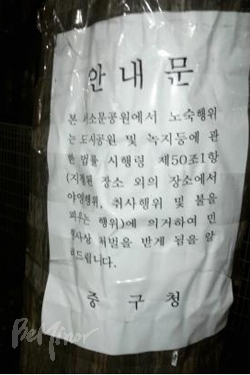 안내문
본 서소문공원에서 노숙행위
는 도시공원 및 녹지등에 관
한 법률 시행령 제50조1항
(지정된 장소 외의 장소에서
야영행위, 취사행위 및 불을
피우는 행위)에 의거하여 민
형사상 처벌을 받게 됨을 알
려드립니다.
중구청
BeMinor